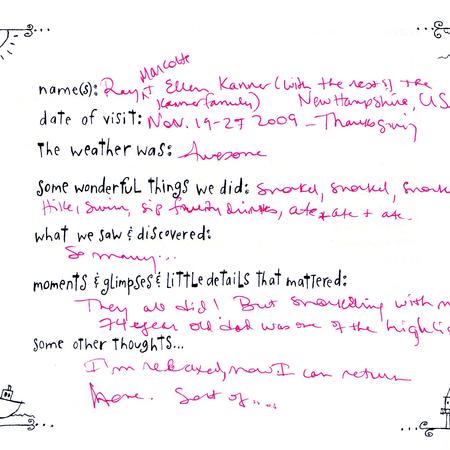 Marcotte
name(s): Ray & Ellen Kanner (with the rest of the
Kanner family) New Hampshire, US
date of visit: Nov. 19-27 2009 - Thanksgiving
The weather was: Awesome
some wonderful things we did: Snorkel, snorkel, snorke
Hike, swim, sip fruity drinks, ate + ate + ate.
what we saw & discovered:
So many...
moments & glimpses & little details that mattered:
They all did! But snorkelling with m
74 year old dad was one of the highli
some other thoughts...
I'm relaxed, now I can return
home. Sort of....